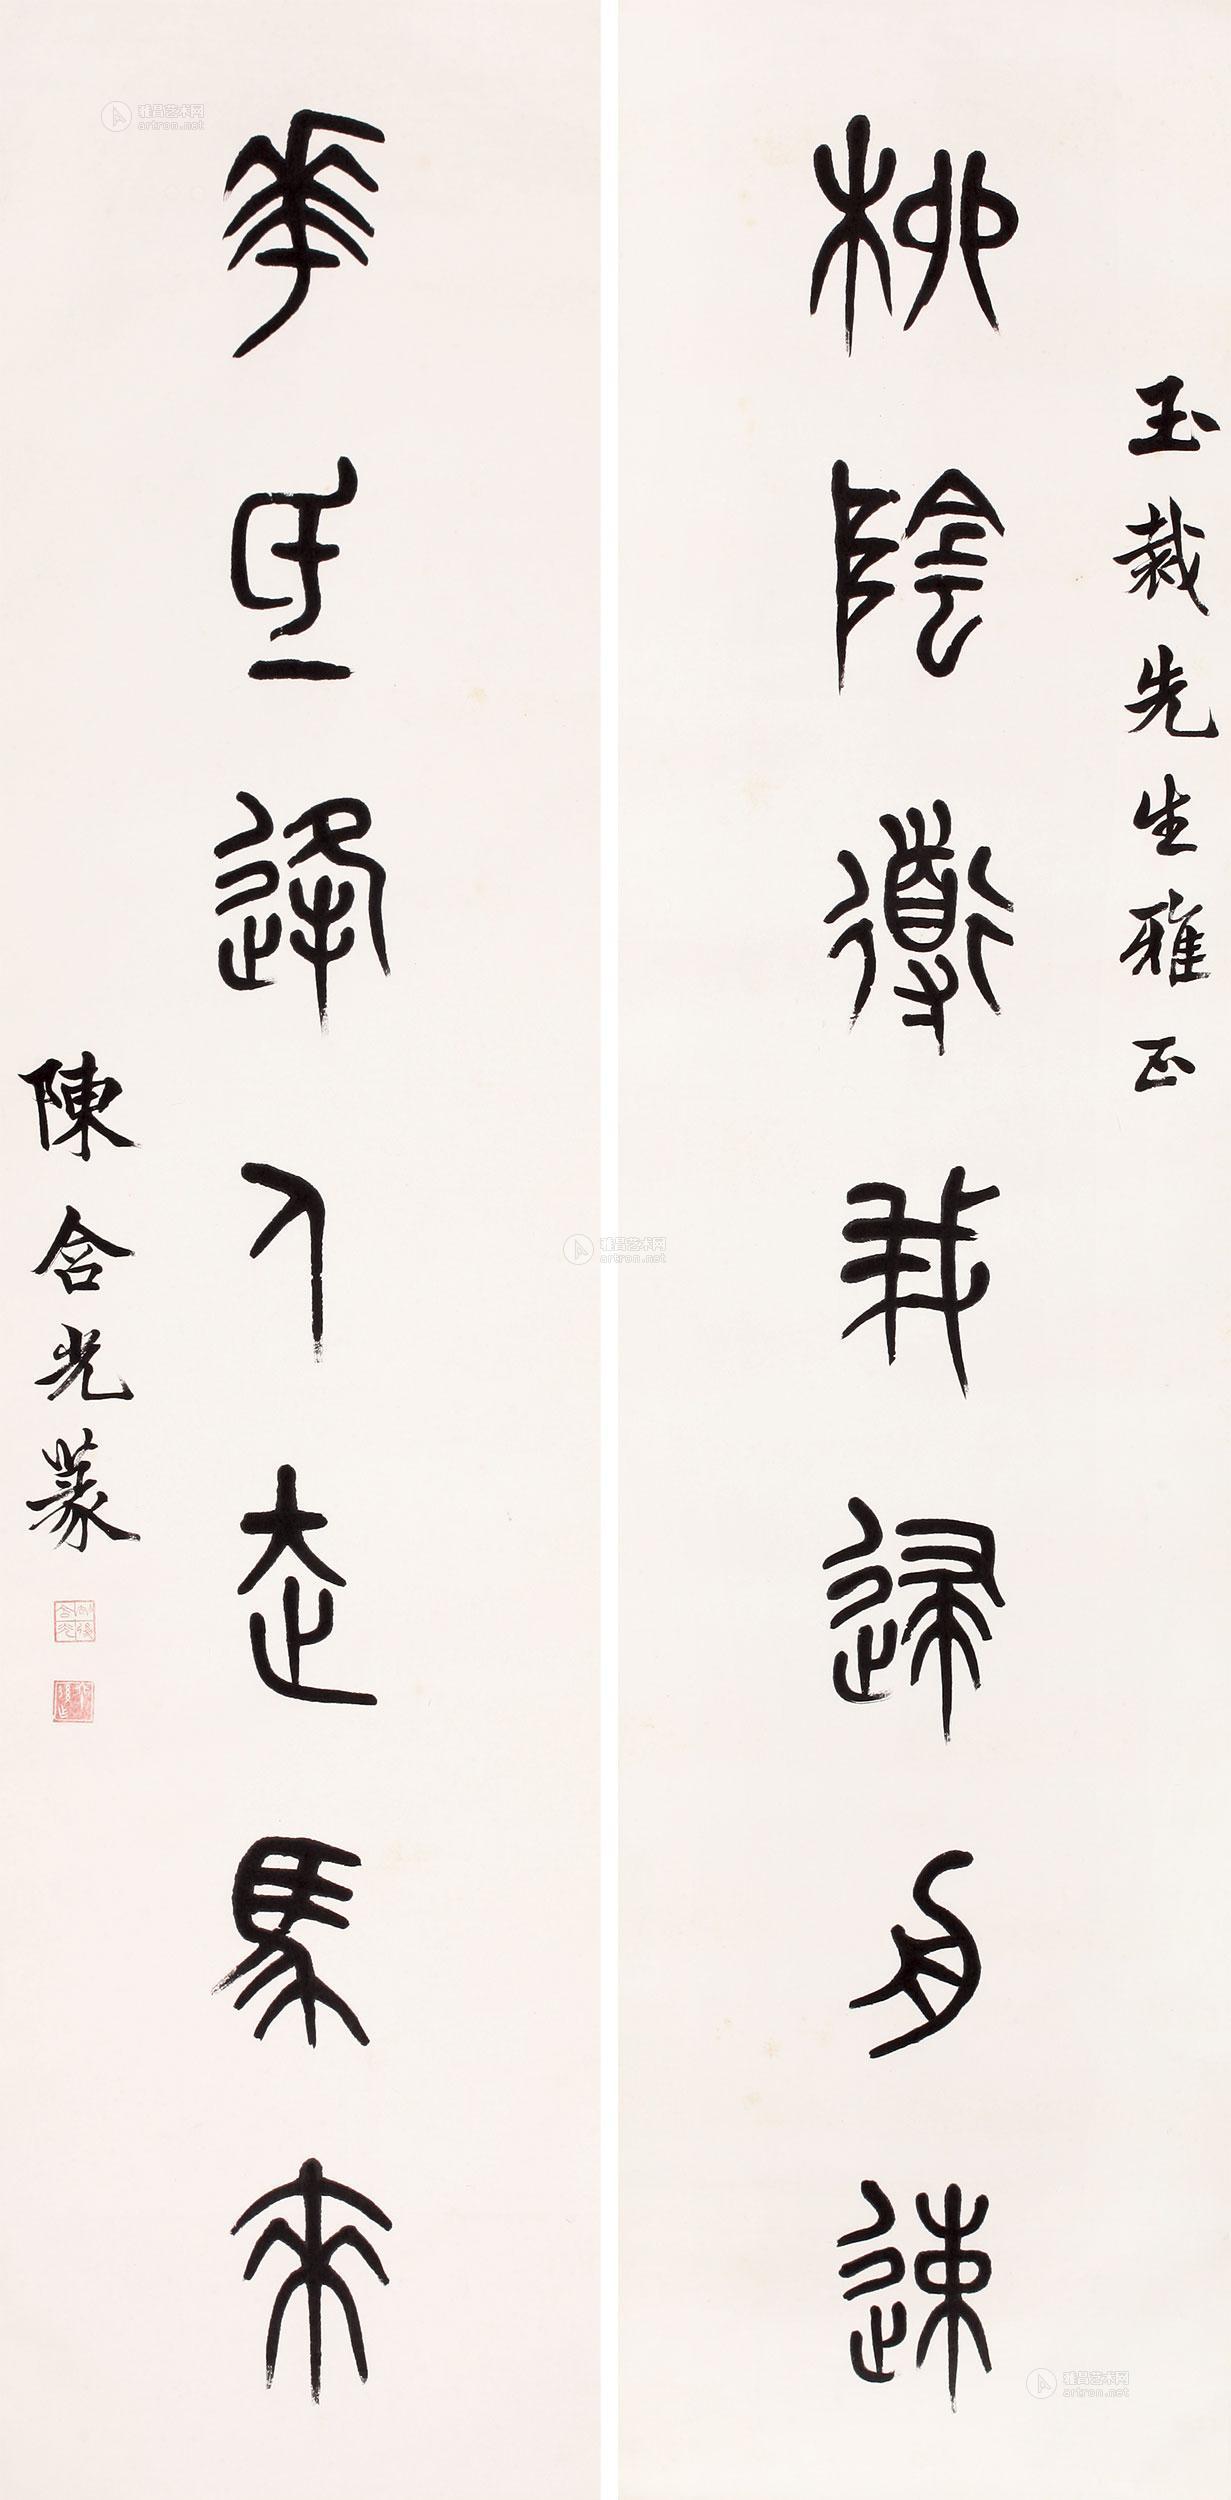 玉裁先生雅正
柳陰導我歸舟速
華氐逢人走馬來
陳含光篆
雅昌艺术网
artron.net
雅昌艺术网
artron.net
雅昌艺术网
artron.net